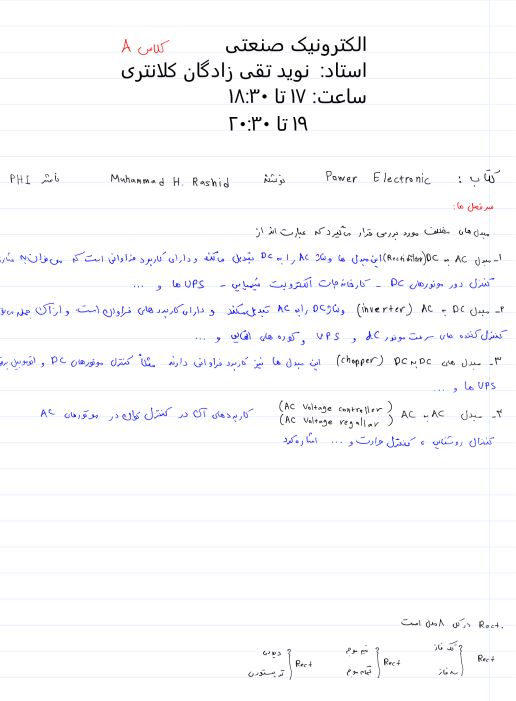 الکترونیک صنعتی
کلاس A
استاد: نوید تقی زادگان کلانتری
ساعت: ۱۷ تا ۱۸:۳۰
۱۹ تا ۲۰:۳۰
کتاب: Power Electronic نویسنده Muhammad H. Rashid ناشر PHI
سرفصل ها:
مبدل های مختلف مورد بررسی قرار میگیرد که عبارت اند از
۱- مبدل AC به DC (Rectifier) این مبدل ها ولتاژ AC را به DC تبدیل میکند و دارای کاربرد فراوانی است که می توان به
کنترل دور موتورهای DC - کارخانه جات الکترولیت شیمیایی - UPS ها و ...
۲- مبدل DC به AC (inverter) ولتاژ DC را به AC تبدیل میکند و دارای کاربرد های فراوان است و از آن جمله
کنترل کننده های سرعت موتور dc و UPS و کوره های القایی و ...
۳- مبدل های DC به DC (chopper) این مبدل ها نیز کاربرد فراوانی دارند مثلا کنترل موتورهای DC و اتومبیل
UPS ها و ...
۴- مبدل AC به AC (AC Voltage controller) (AC Voltage regular) کاربردهای آن در کنترل توان در موتورهای AC
کنترل روشنایی، کنترل حرارت و ... اشاره کرد
Rect. در کل ۸ مدل است
Rect } تک فاز
سه فاز
Rect } نیم موج
تمام موج
Rect } دیودی
تریستوری